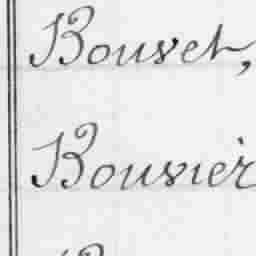 Bouvet,
Bouvier